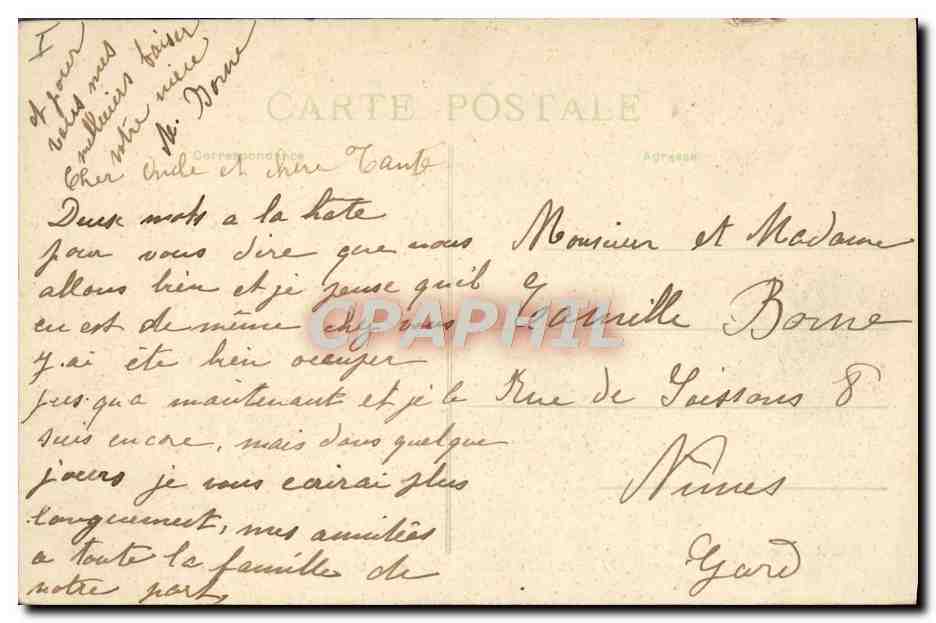 I
CARTE POSTALE
Correspondance
Adresse
Cher Oncle et chère Tante
Deux mots a la hate
pour vous dire que nous
allons bien et je pense qu'il
en est de même chez vous
J.ai été bien occuper
jus.qu a maintenant et je le
suis encore, mais dans quelque
jours je vous ecrirai plus
longuement, mes amitiées
a toute la famille de
notre part,
et pour
vous mes
meilleurs baiser
votre nièce
M. Borne
Monsieur et Madame
Camille Borne
Rue de Soissons 8
Nimes
Gard
CPAPHIL